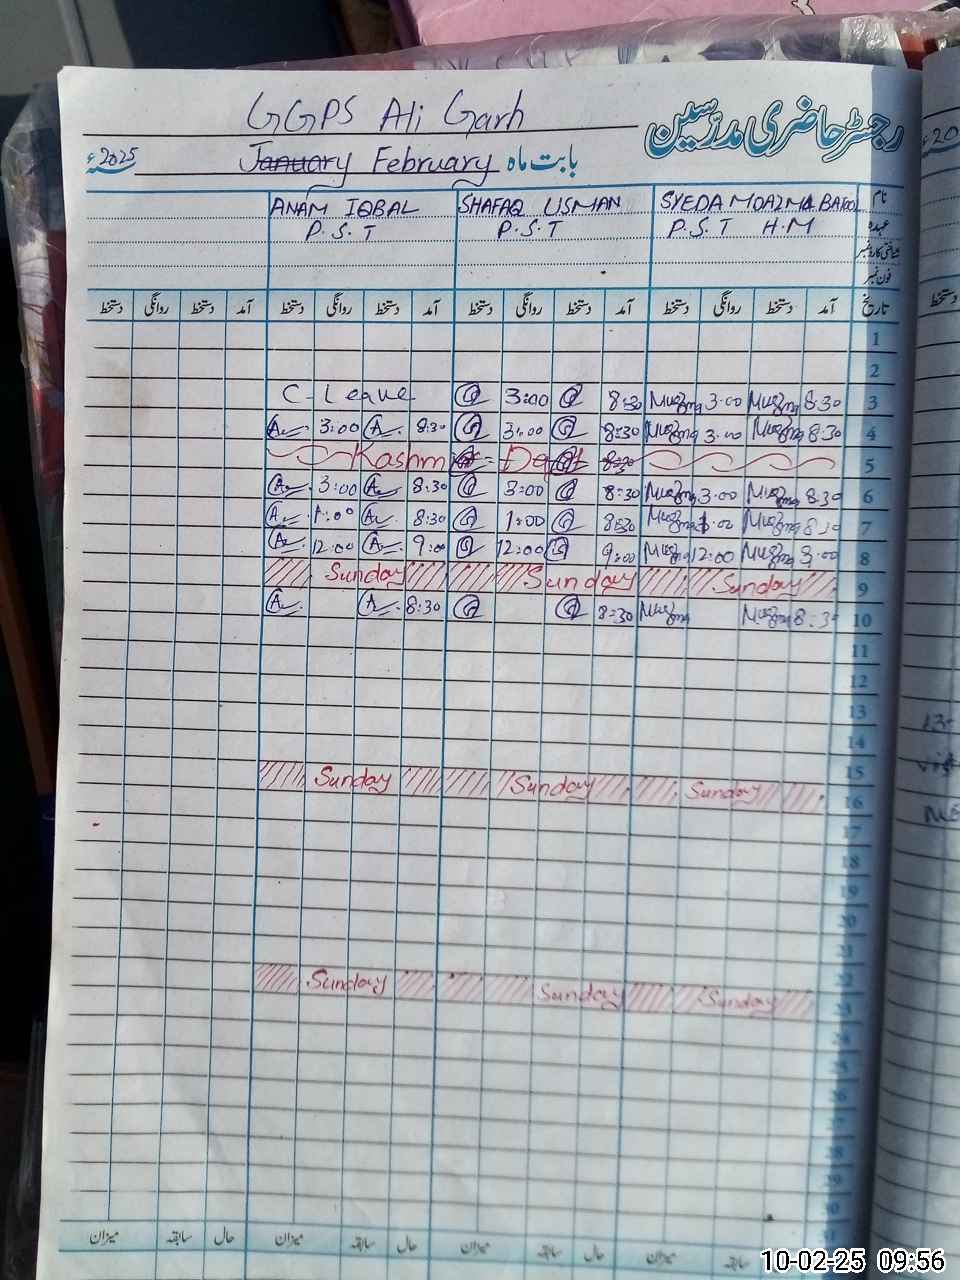 GGPS Ali Garh
رجسٹر حاضری مدرسین
2025ء January February بابت ماہ
ANAM IQBAL SHAFAQ USMAN SYEDA MOAZMA BATOOL نام
P.S.T P.S.T P.S.T H.M عہدہ
شناختی کارڈ نمبر
فون نمبر
دستخط روانگی دستخط آمد دستخط روانگی دستخط آمد دستخط روانگی دستخط آمد دستخط روانگی دستخط آمد تاریخ
1
2
C-Leave 3:00 8:30 3:00 8:30 3
3:00 8:30 3:00 8:30 3:00 8:30 4
Kashmir Day 8:30 5
3:00 8:30 3:00 8:30 3:00 8:30 6
1:00 8:30 1:00 8:30 1:00 8:30 7
12:00 9:00 12:00 9:00 12:00 9:00 8
Sunday Sunday Sunday 9
8:30 8:30 8:30 10
11
12
13
14
15
Sunday Sunday Sunday 16
17
18
19
20
21
22
Sunday Sunday Sunday 23
24
25
26
27
28
29
30
31
میزان سابقہ حال میزان سابقہ حال میزان سابقہ حال میزان سابقہ
10-02-25 09:56